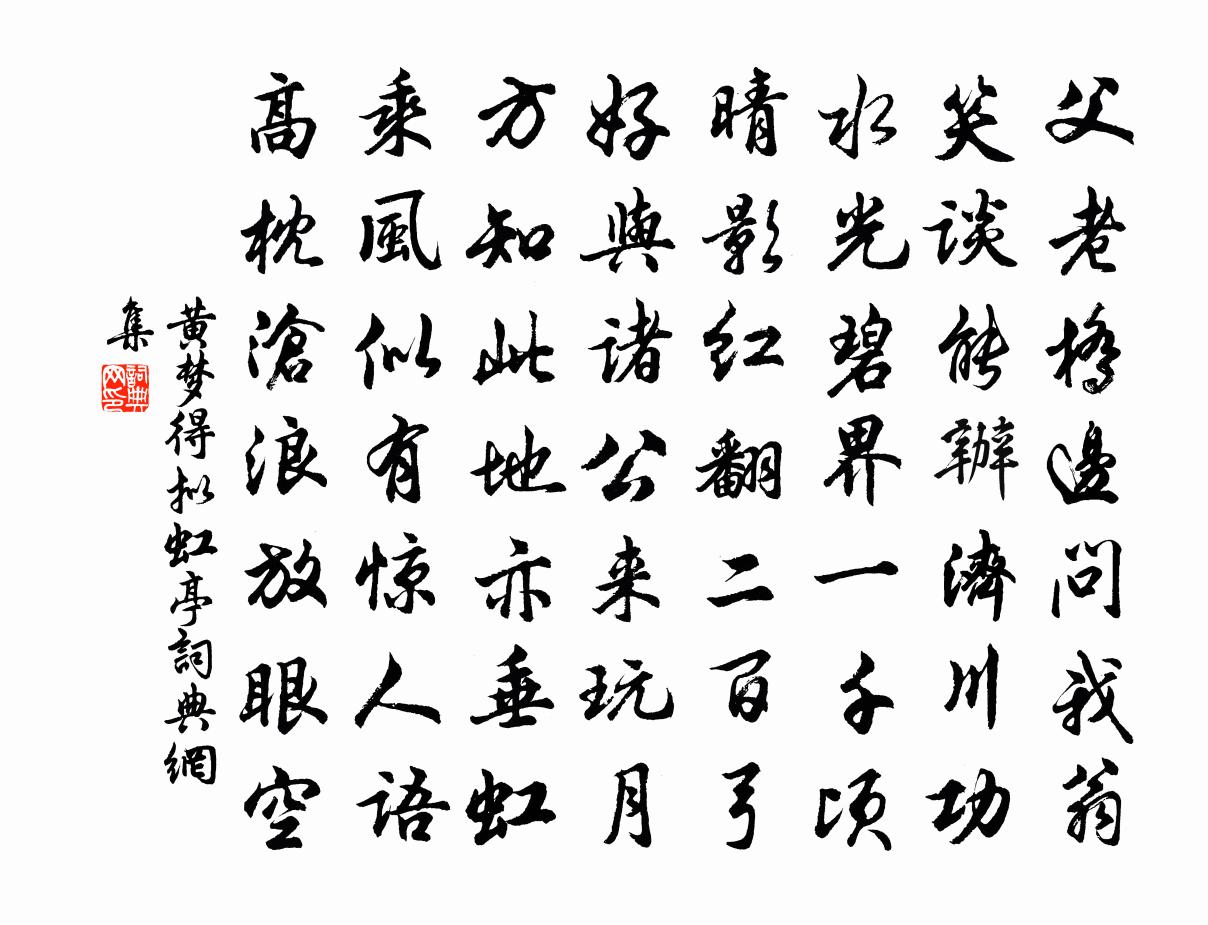 父老橋邊問我翁
笑談能辦濟川功
水光碧界一千頃
晴影红翻二百弓
好與诸公来玩月
方知此地亦垂虹
乘風似有惊人語
高枕滄浪放眼空
黄梦得拟虹亭詞典網
集
詞典
网印